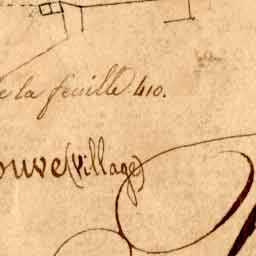 e la feuille 410.
ouve (village)